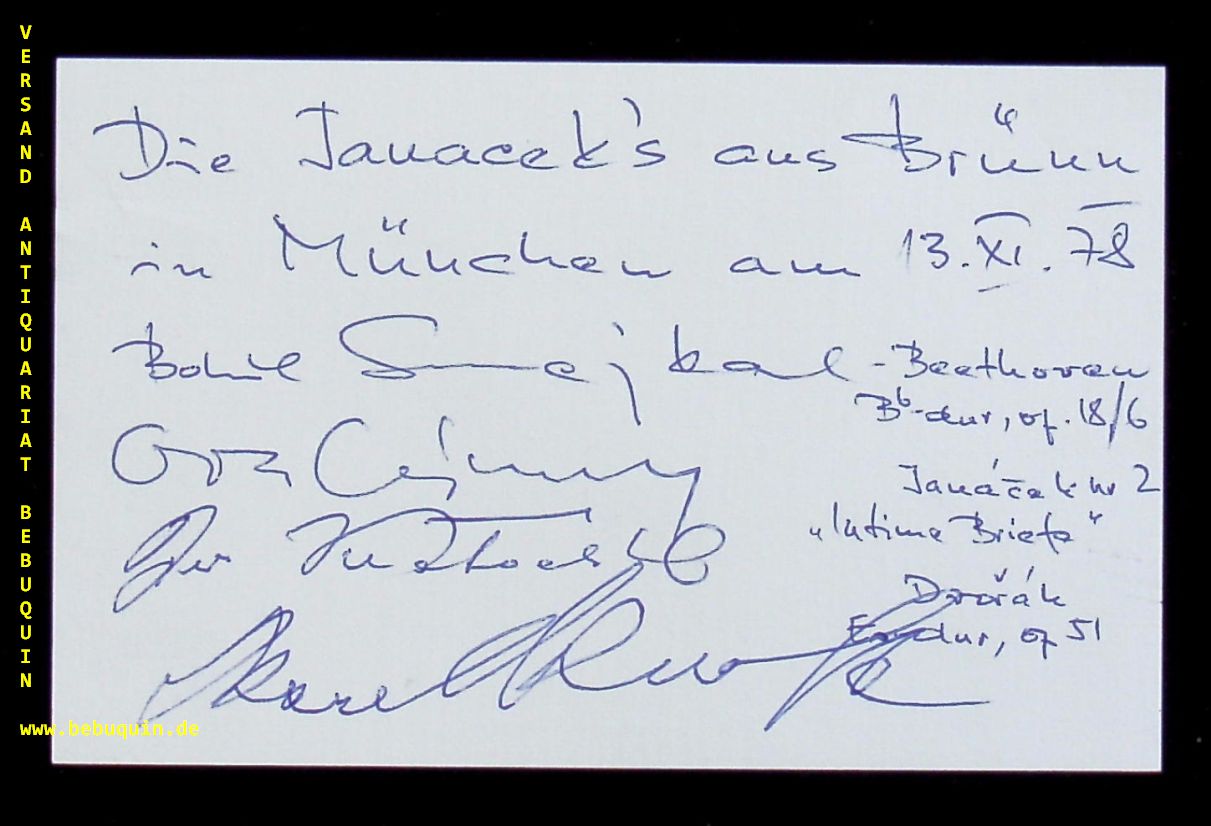 VERSAND ANTIQUARIAT BEBUQUIN
Die Janacek's aus Brünn
in München am 13.XI.78
Bohumil Smejkal - Beethoven
Bb-dur, op. 18/6
Janáček nr 2
„Intime Briefe“
Dvořák
Es-dur, op 51
Adolf
Karel
www.bebuquin.de